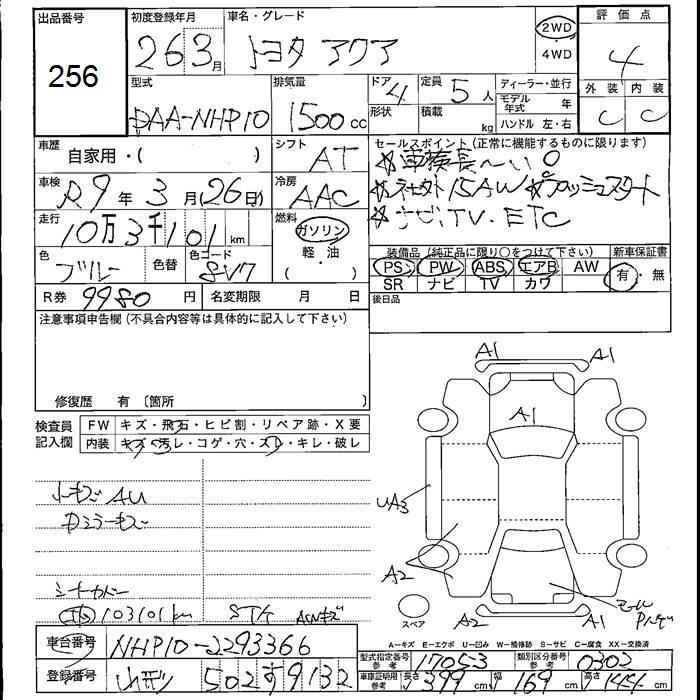 出品番号
256
初度登録年月
26 3月
車名・グレード
トヨタ アクア
2WD
4WD
評価点
4
外装 内装
C C
型式
DAA-NHP10
排気量
1500cc
ドア 4
形状
定員 5人
積載 kg
ディーラー・並行
モデル年式 年
ハンドル 左・右
車歴 自家用・( )
シフト AT
セールスポイント (正常に機能するものに限ります)
☆車検長〜い
☆社外15AW ☆プッシュスタート
☆ナビ.TV.ETC
車検 R9年3月(26日)
冷房 AAC
走行 10万3千101km
燃料
ガソリン
(軽・油)
色 ブルー
色替
色コード 8V7
装備品 (純正品に限り○をつけて下さい) 新車保証書
PS PW ABS エアB AW 有・無
SR ナビ TV カワ
R券 9980円 名変期限 月 日
後日品
注意事項申告欄 (不具合内容等は具体的に記入して下さい)
修復歴 有 〔箇所 〕
検査員記入欄
FW キズ・飛石・ヒビ割・リペア跡・X要
内装 キズ・汚レ・コゲ・穴・スレ・キレ・破レ
AU
シートカバー
103101km STキ AWキズ
A1 A1
A1
UA3
A2
A2 A1
スペア
A-キズ E-エクボ U-凹み W-補修跡 S-サビ C-腐食 XX-交換済
車台番号 NHP10-2293366
登録番号 502す9132
型式指定番号参考 17053
類別区分番号参考 0302
車庫証明用参考 長さ 399cm 幅 169cm 高さ 144cm